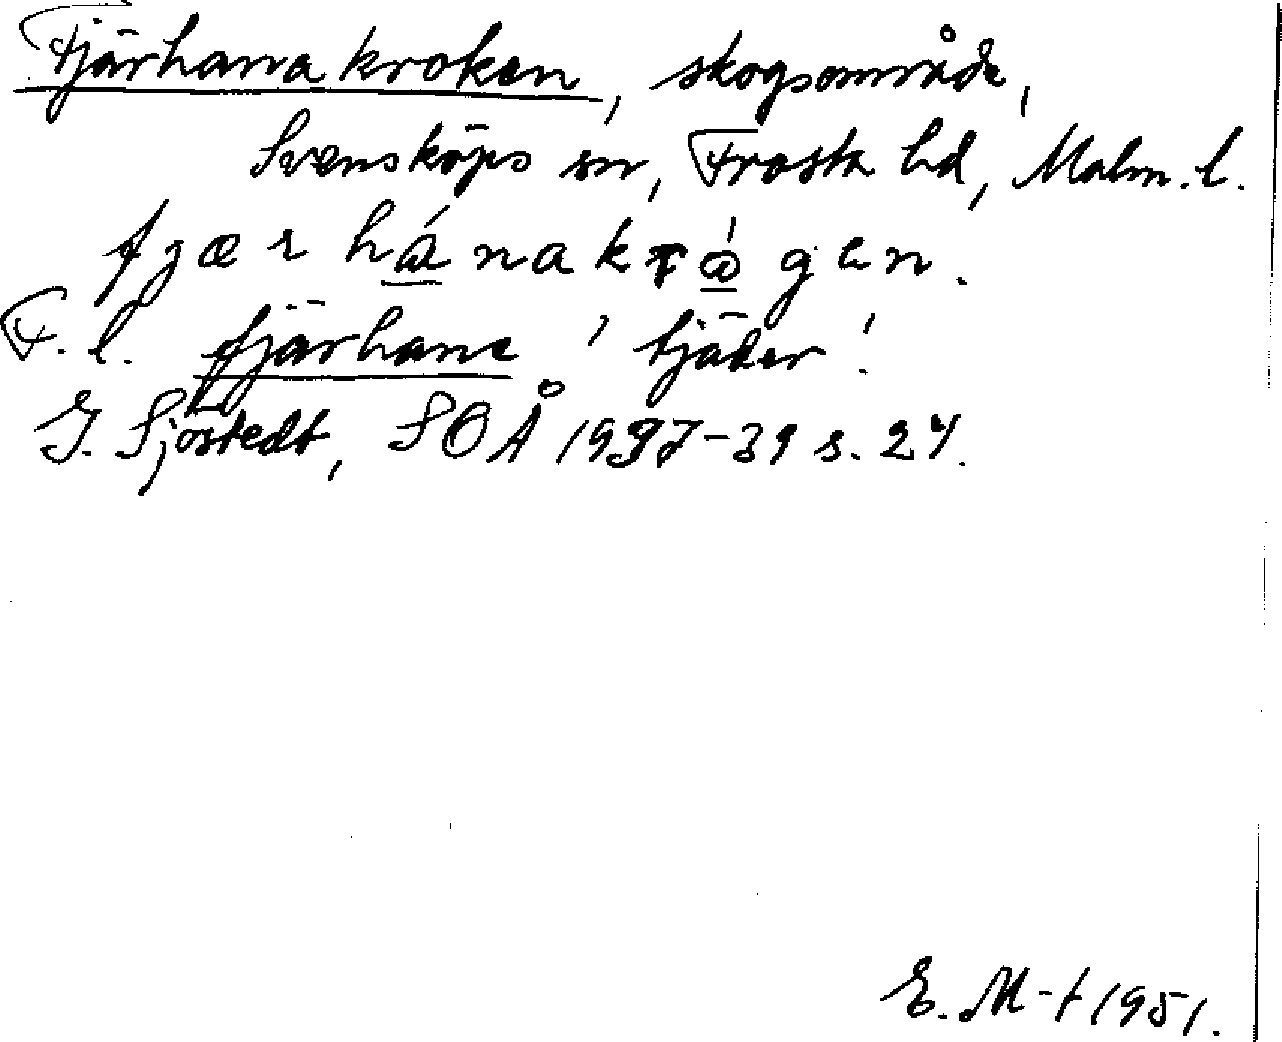 Fjärhanakroken, skogsområde,
Svensköps sn, Frosta hd, Malm. l.
fjærhánakrǿgen.
F. l. fjärhane 'tjäder'.
G. Sjöstedt, SOÅ 1937-39 s. 24.
E. M-t 1951.